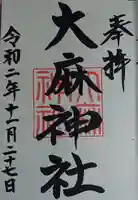 奉拝
大麻神社
令和二年十一月二十七日